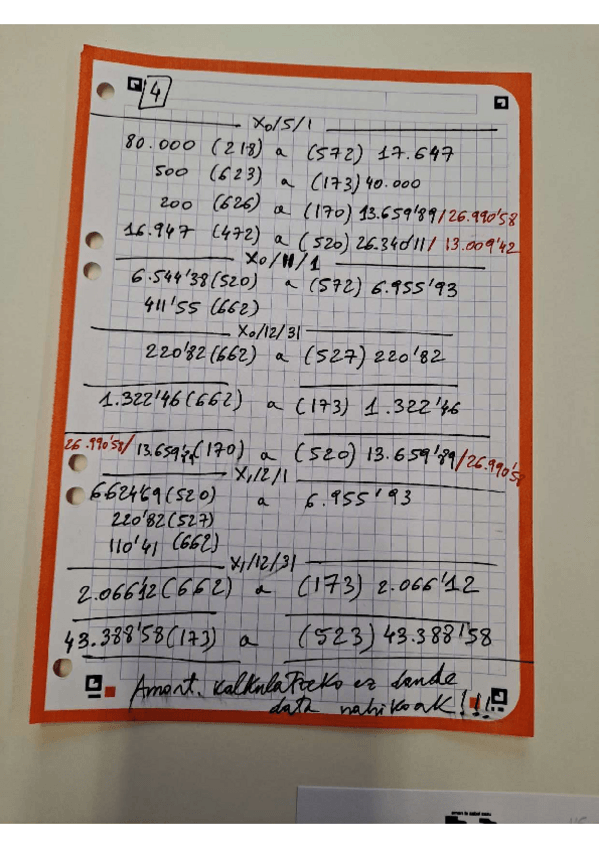 4
X0/5/1
80.000 (218) a (572) 17.647
500 (623) a (173) 40.000
200 (626) a (170) 13.659'89/26.990'58
16.947 (472) a (520) 26.340'11/ 13.009'42
X0/11/1
6.544'38(520) a (572) 6.955'93
411'55 (662)
X0/12/31
220'82(662) a (527) 220'82
1.322'46(662) a (173) 1.322'46
26.990'58/13.659'89(170) a (520) 13.659'89/26.990'58
X1/12/1
6624'69(520) a 6.955'93
220'82(527)
110'41 (662)
X1/12/31
2.066'12(662) a (173) 2.066'12
43.388'58(173) a (523) 43.388'58
Amort. kalkulatzeko ez daude
data nahikoak!!!